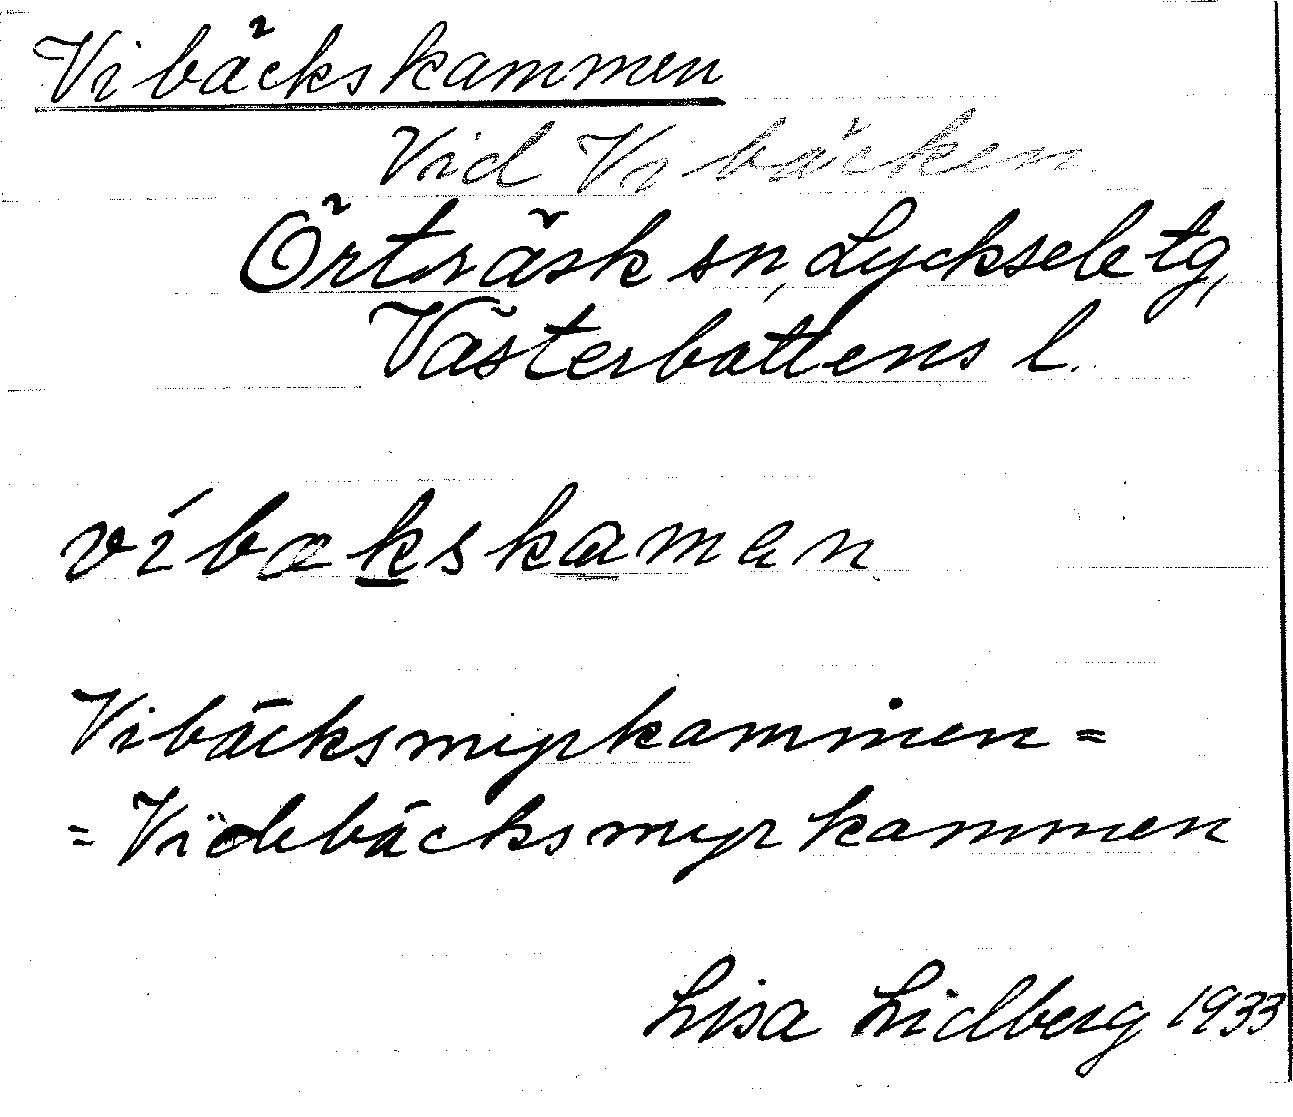 Vibäckskammen
Vid Vibäcken
Örträsk sn, Lycksele tg,
Västerbottens l.
víbækskaman
Vibäcksmyrkammen =
= Videbäcksmyrkammen
Lisa Lidberg 1933